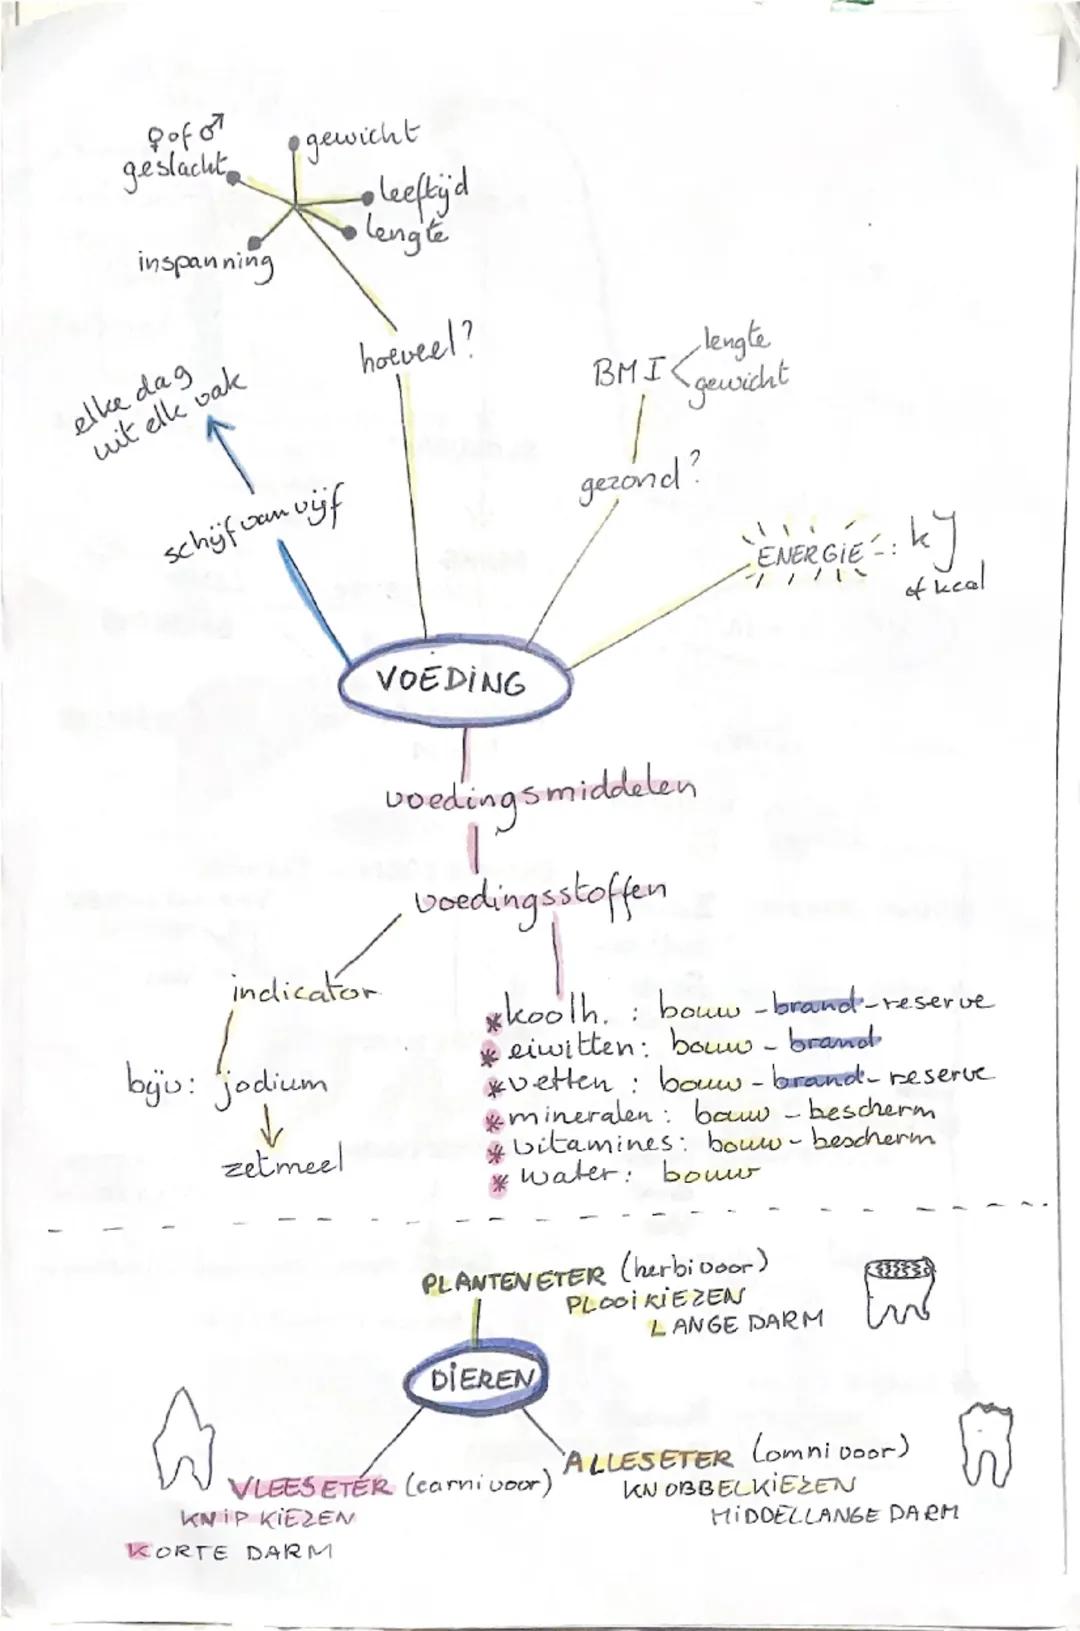 ♀ of ♂
geslacht
gewicht
leeftijd
lengte
inspanning
hoeveel?
elke dag
uit elk vak
schijf van vijf
BMI
lengte
gewicht
gezond?
ENERGIE : kJ
of kcal
VOEDING
voedingsmiddelen
voedingsstoffen
indicator
bijv: jodium
zetmeel
* koolh. : bouw - brand - reserve
* eiwitten : bouw - brand
* vetten : bouw - brand - reserve
* mineralen : bouw - bescherm
* vitamines : bouw - bescherm
* water : bouw
PLANTENETER (herbivoor)
PLOOIKIEZEN
LANGE DARM
DIEREN
VLEESETER (carnivoor)
KNIPKIEZEN
KORTE DARM
ALLESETER (omnivoor)
KNOBBELKIEZEN
MIDDELLANGE DARM